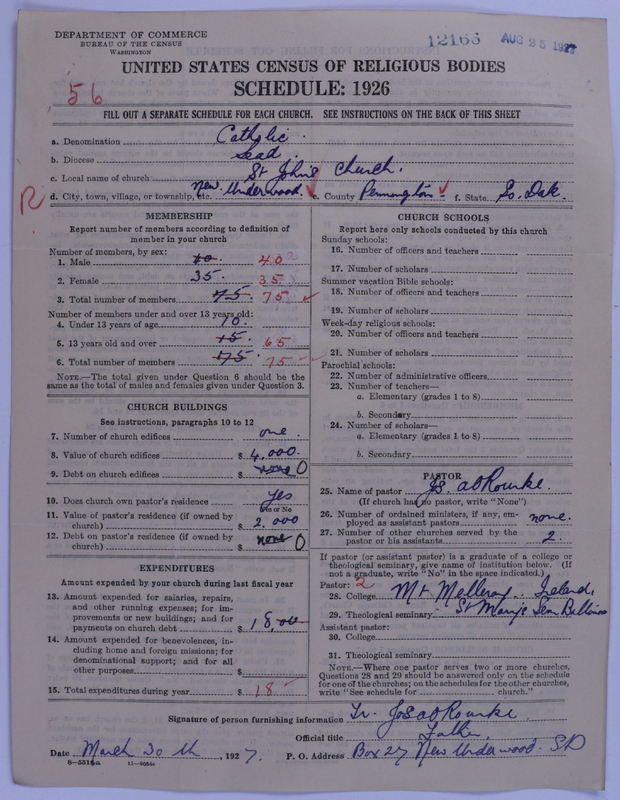 DEPARTMENT OF COMMERCE
BUREAU OF THE CENSUS
WASHINGTON
12166 AUG 25 1927
UNITED STATES CENSUS OF RELIGIOUS BODIES
SCHEDULE: 1926
56
FILL OUT A SEPARATE SCHEDULE FOR EACH CHURCH. SEE INSTRUCTIONS ON THE BACK OF THIS SHEET
a. Denomination Catholic.
b. Diocese Lead.
c. Local name of church St John's Church.
d. City, town, village, or township, etc. New Underwood. e. County Pennington f. State So. Dak.
R
MEMBERSHIP
Report number of members according to definition of
member in your church
Number of members, by sex:
1. Male 40 40
2. Female 35. 35
3. Total number of members 75. 75
Number of members under and over 13 years old:
4. Under 13 years of age 10.
5. 13 years old and over 15. 65
6. Total number of members 175 75
NOTE.—The total given under Question 6 should be the
same as the total of males and females given under Question 3.
CHURCH BUILDINGS
See instructions, paragraphs 10 to 12
7. Number of church edifices one.
8. Value of church edifices $ 4,000.
9. Debt on church edifices $ none 0
10. Does church own pastor's residence Yes
Yes or No
11. Value of pastor's residence (if owned by
church) $ 2.000
12. Debt on pastor's residence (if owned by
church) $ none 0
EXPENDITURES
Amount expended by your church during last fiscal year
13. Amount expended for salaries, repairs,
and other running expenses; for im-
provements on new buildings; and for
payments on church debt $ 18,00
14. Amount expended for benevolences, in-
cluding home and foreign missions; for
denominational support; and for all
other purposes $
15. Total expenditures during year $ 18
CHURCH SCHOOLS
Report here only schools conducted by this church
Sunday schools:
16. Number of officers and teachers
17. Number of scholars
Summer vacation Bible schools:
18. Number of officers and teachers
19. Number of scholars
Week-day religious schools:
20. Number of officers and teachers
21. Number of scholars
Parochial schools:
22. Number of administrative officers
23. Number of teachers—
a. Elementary (grades 1 to 8)
b. Secondary
24. Number of scholars—
a. Elementary (grades 1 to 8)
b. Secondary
PASTOR
25. Name of pastor Jos. A O'Rourke.
(If church has no pastor, write "None")
26. Number of ordained ministers, if any, em-
ployed as assistant pastors none.
27. Number of other churches served by the
pastor or his assistants 2.
If pastor (or assistant pastor) is a graduate of a college or
theological seminary, give name of institution below. (If
not a graduate, write "No" in the space indicated.)
Pastor: 2
28. College Mt Melleray. Ireland,
29. Theological seminary St Mary's Sem
Assistant pastor:
30. College
31. Theological seminary
NOTE.—Where one pastor serves two or more churches,
Questions 28 and 29 should be answered only on the schedule
for one of the churches; on the schedules for the other churches,
write "See schedule for church."
Signature of person furnishing information Fr. Jos A O Rourke
Official title Father.
Date March 30 th, 1927. P. O. Address Box 27 New Underwood. SD
8—5518a 11—9054